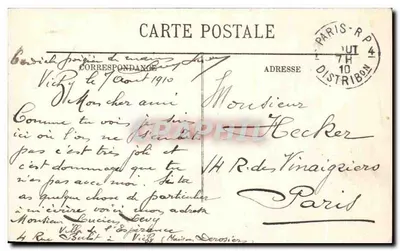 CARTE POSTALE
CORRESPONDANCE
ADRESSE
PARIS - R.P. 4
OUT
7H
10
DISTRIBON
Vichy le 7 août 1910
Mon cher ami
Comme tu vois je suis
ici où l'on ne s'embête
pas c'est très joli et
c'est dommage que tu
n'es pas avec moi. Si tu
as quelque chose de particulier
à m'écrire voici mon adresse
Monsieur Lucien Levy
Villa de l'Espérance
4 Rue à Vichy (Maison Derosiers)
Monsieur
Hecker
14 R. des Vinaigriers
Paris